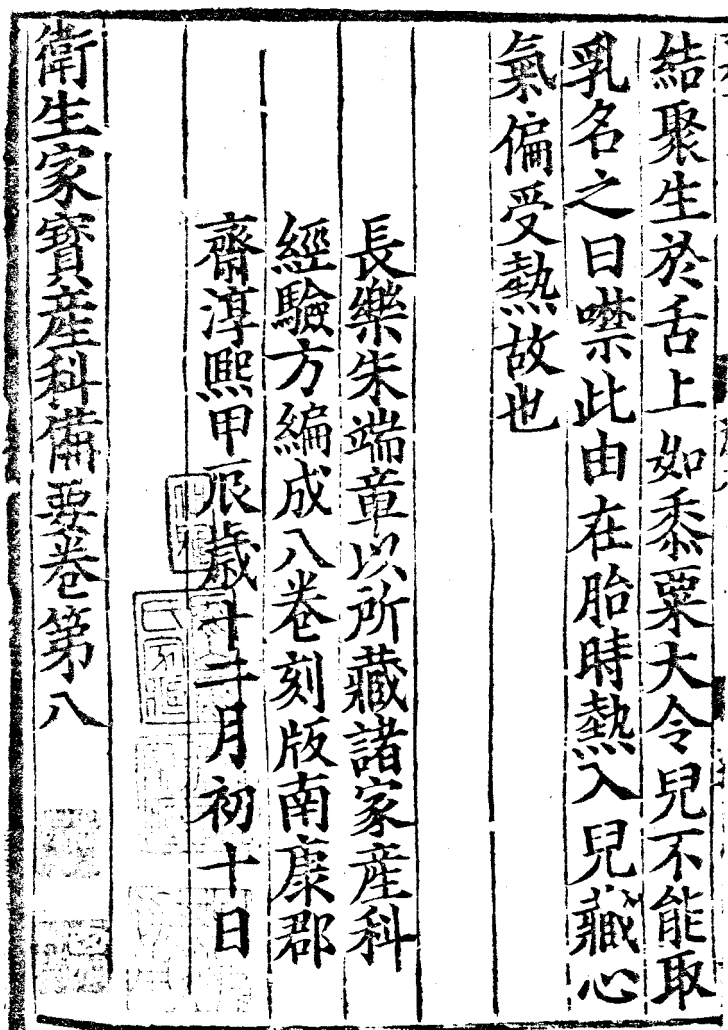 結聚生於舌上如黍粟大令兒不能取
乳名之曰噤此由在胎時熱入兒藏心
氣偏受熱故也
長樂朱端章以所藏諸家産科
經驗方編成八卷刻版南康郡
齋淳熙甲辰歲十二月初十日
衛生家寶産科備要卷第八